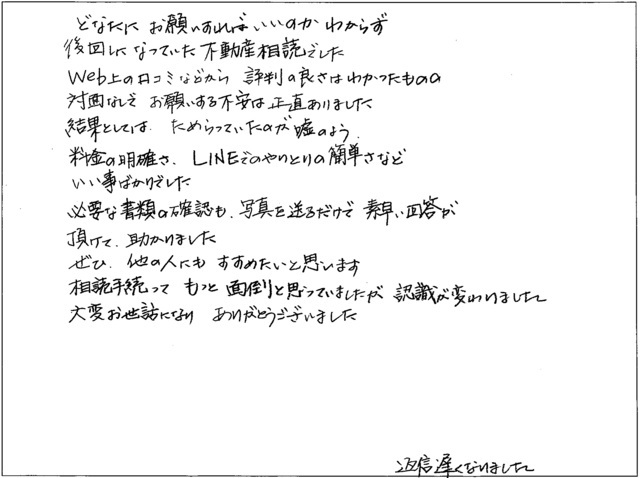 どなたに お願いすればいいのか わからず
後回しになっていた不動産相続でした
Web上の口コミなどから 評判の良さはわかったものの
対面なしで お願いする不安は正直ありました
結果としては、ためらっていたのが嘘のよう、
料金の明確さ、LINEでのやりとりの簡単さなど
いい事ばかりでした
必要な書類の確認も、写真を送るだけで 素早い回答が
頂けて、助かりました
ぜひ、他の人にも すすめたいと思います
相続手続って もっと 面倒と思っていましたが 認識が変わりました
大変お世話になり ありがとうございました
返信遅くなりました